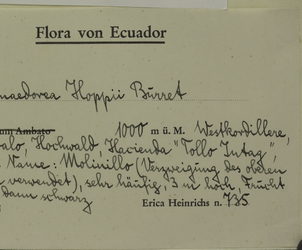 Flora von Ecuador
maedorea Hoppii Burret
um Ambato 1000 m ü. M. Westkordillere,
alo, Hochwald, Hacienda "Tollo Intag",
Name: Molinillo (Verzweigung des oberen
verwendet), sehr häufig, 3 m hoch, Frucht
dann schwarz
Erica Heinrichs n. 735